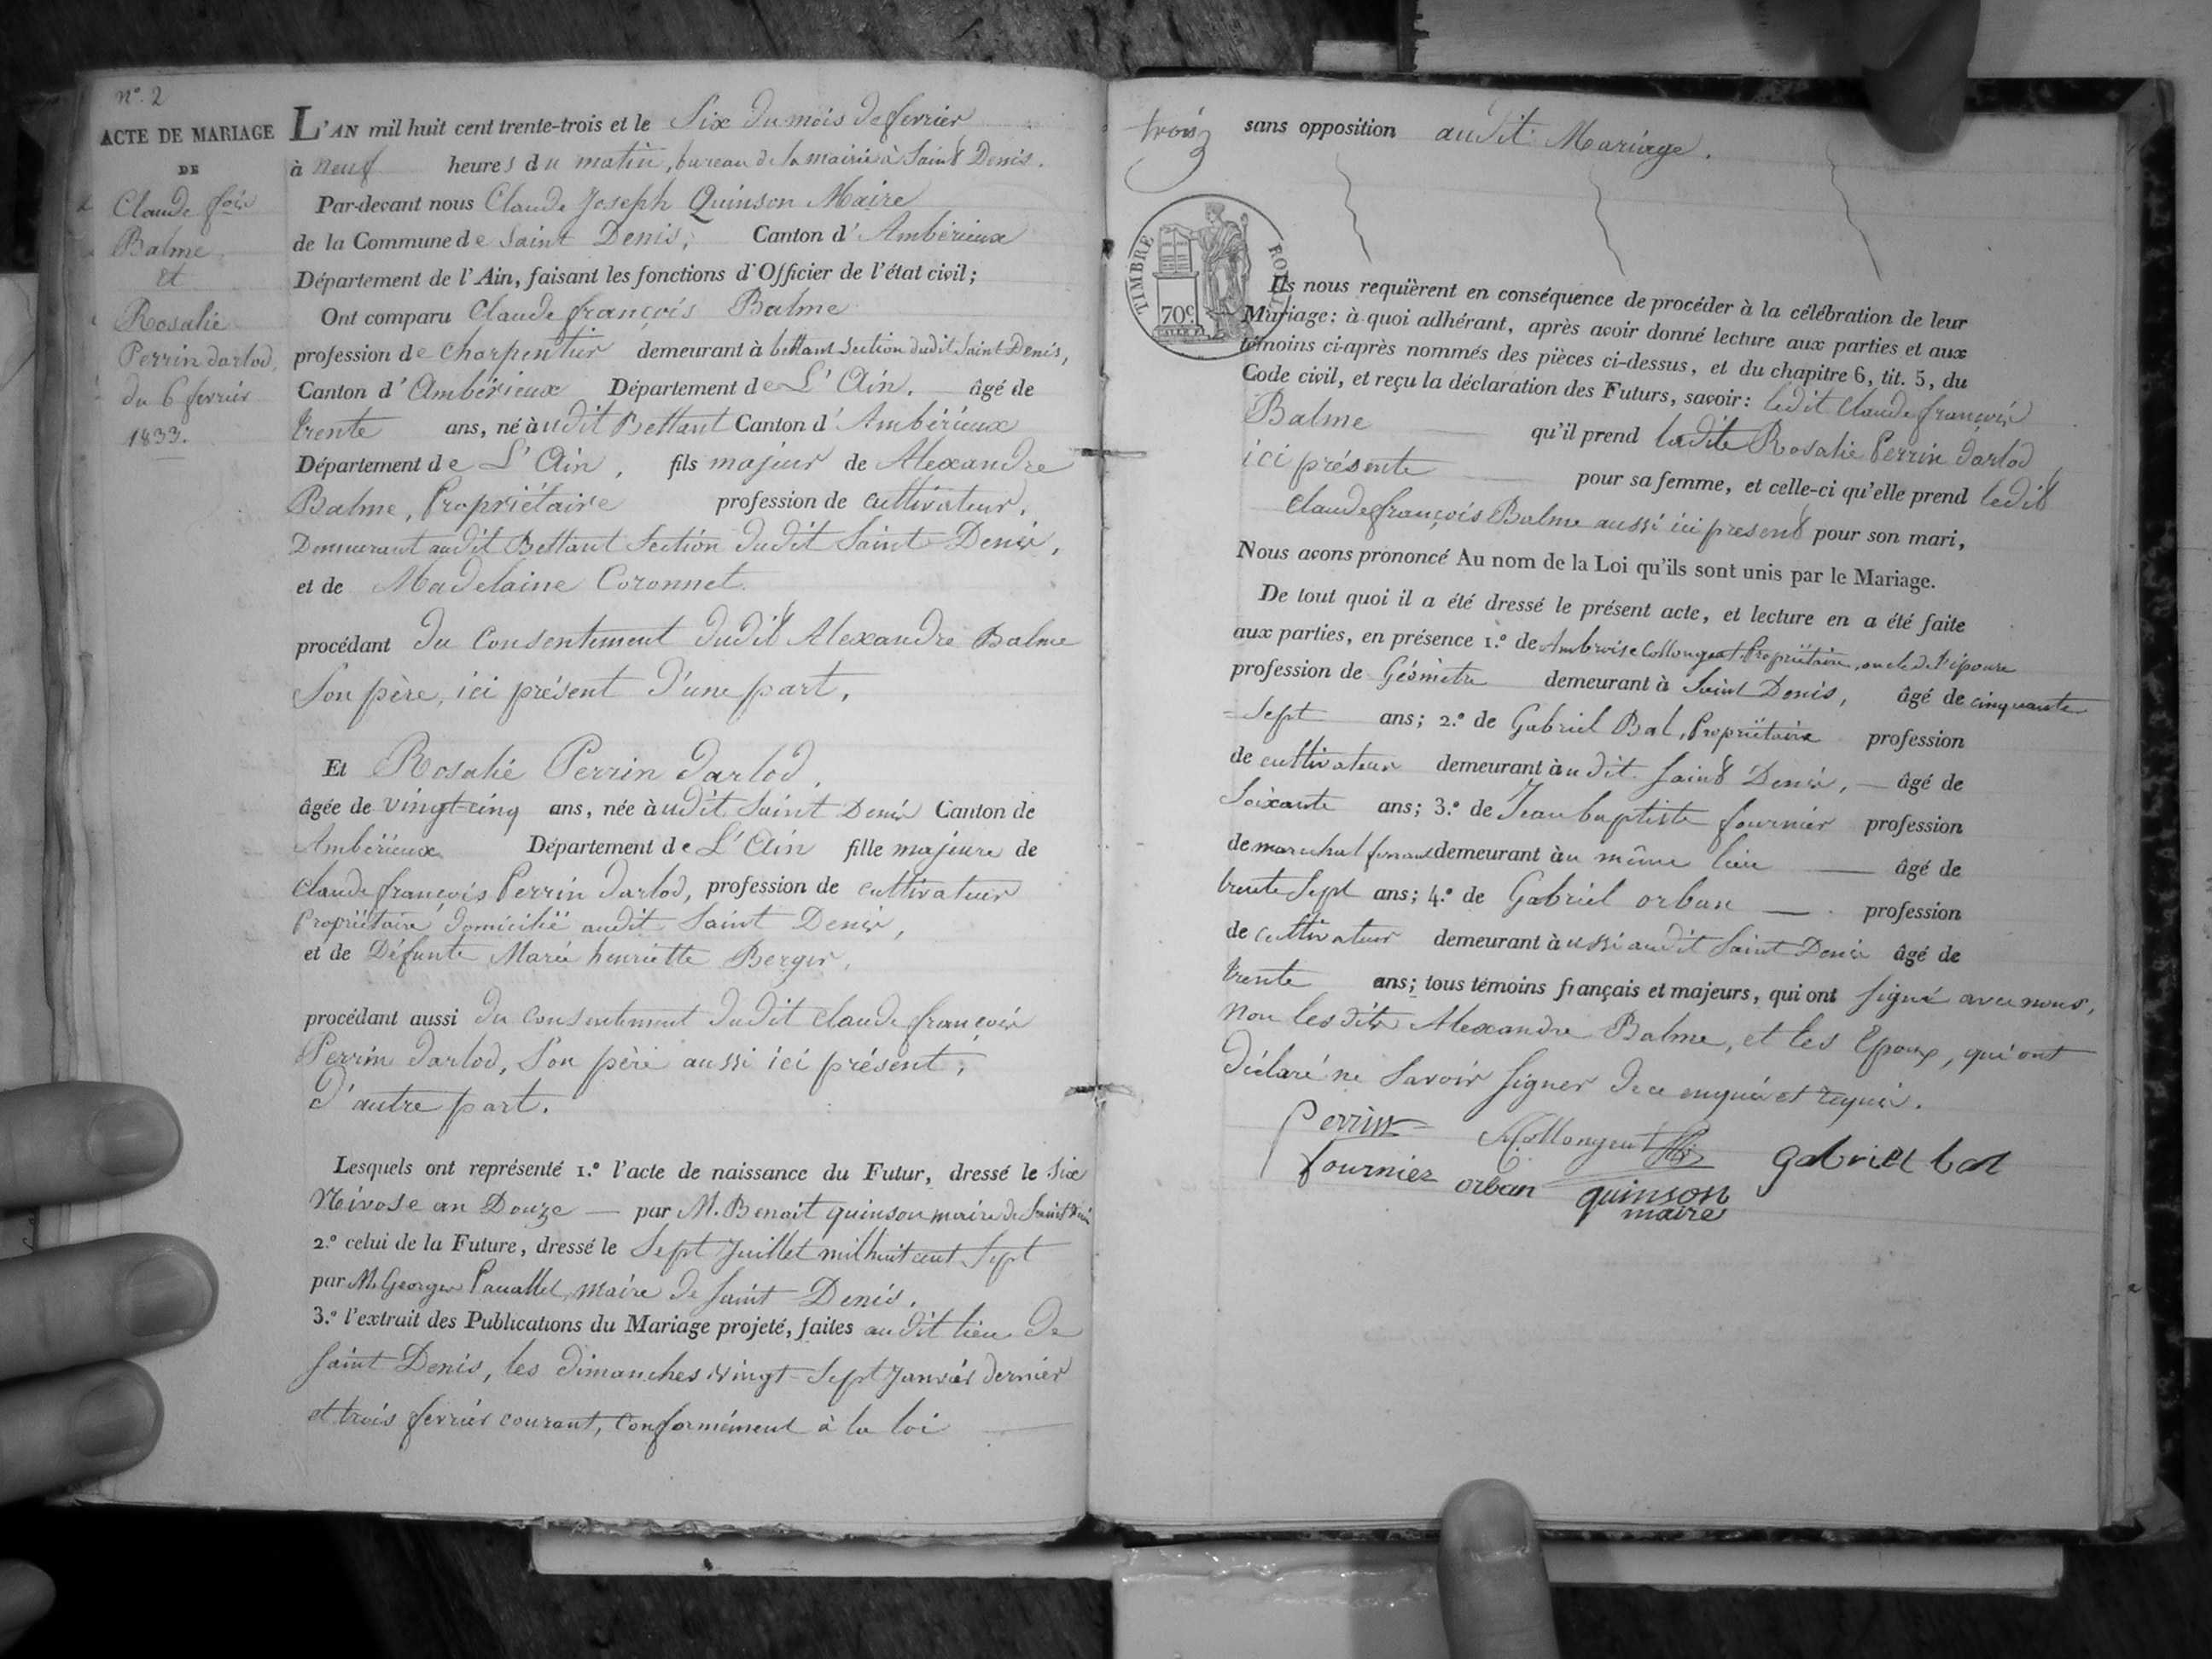 n.º 2
ACTE DE MARIAGE
DE
Claude fois
Balme
et
Rosalie
Perrin darlod,
du 6 fevrier
1833.
L'AN mil huit cent trente-trois et le Six du mois de fevrier
à neuf heures du matin, bureau de la mairie à Saint Denis.
Par-devant nous Claude Joseph Quinson Maire
de la Commune de Saint Denis, Canton d'Ambérieux
Département de l'Ain, faisant les fonctions d'Officier de l'état civil;
Ont comparu Claude françois Balme
profession de Charpentier demeurant à bettant Section dudit Saint Denis,
Canton d'Ambérieux Département de L'Ain. âgé de
trente ans, né àudit Bettant Canton d'Ambérieux
Département de L'Ain, fils majeur de Alexandre
Balme, Propriétaire profession de cultivateur,
Demeurant audit Bettant Section dudit Saint Denis,
et de Madelaine Coronnet
procédant du Consentement dudit Alexandre Balme
Son père, ici présent d'une part,
Et Rosalie Perrin darlod,
âgée de vingt-cinq ans, née àudit Saint Denis Canton de
Ambérieux Département de L'Ain fille majeure de
Claude françois Perrin darlod, profession de cultivateur
Propriétaire domicilié audit Saint Denis,
et de Défunte Marie henriette Berger,
procédant aussi du Consentement dudit claude françois
Perrin darlod, Son père aussi ici présent,
d'autre part.
Lesquels ont représenté 1.º l'acte de naissance du Futur, dressé le Six
Nivose an Douze — par M. Benoit quinson maire de Saint Denis
2.º celui de la Future, dressé le Sept Juillet mil huit cent Sept
par M. George maire de Saint Denis.
3.º l'extrait des Publications du Mariage projeté, faites audit lieu de
Saint Denis, les dimanches vingt-Sept Janvier dernier
et trois fevrier courant, Conformément à la loi
trois
sans opposition audit Mariage.
TIMBRE ROYAL
70c
Ils nous requièrent en conséquence de procéder à la célébration de leur
Mariage: à quoi adhérant, après avoir donné lecture aux parties et aux
témoins ci-après nommés des pièces ci-dessus, et du chapitre 6, tit. 5, du
Code civil, et reçu la déclaration des Futurs, savoir: ledit Claude françois
Balme qu'il prend ladite Rosalie Perrin darlod
ici présente pour sa femme, et celle-ci qu'elle prend ledit
Claude françois Balme aussi ici present pour son mari,
Nous avons prononcé Au nom de la Loi qu'ils sont unis par le Mariage.
De tout quoi il a été dressé le présent acte, et lecture en a été faite
aux parties, en présence 1.º de Ambroise Collongeat Propriétaire, oncle de l'épouse
profession de Géomètre demeurant à Saint Denis, âgé de cinquante
=Sept ans; 2.º de Gabriel Bal, Propriétaire profession
de cultivateur demeurant àudit Saint Denis, — âgé de
Soixante ans; 3.º de Jean baptiste fournier profession
de marechal ferrant demeurant àu même lieu — âgé de
trente Sept ans; 4.º de Gabriel orban — profession
de cultivateur demeurant àussi audit Saint Denis âgé de
trente ans; tous témoins français et majeurs, qui ont Signé avec nous,
non lesdits Alexandre Balme, et les Epoux, qui ont
déclaré ne Savoir Signer de ce enquis et requis.
Perrin Collongeat gabriel bal
fournier orban quinson
maire